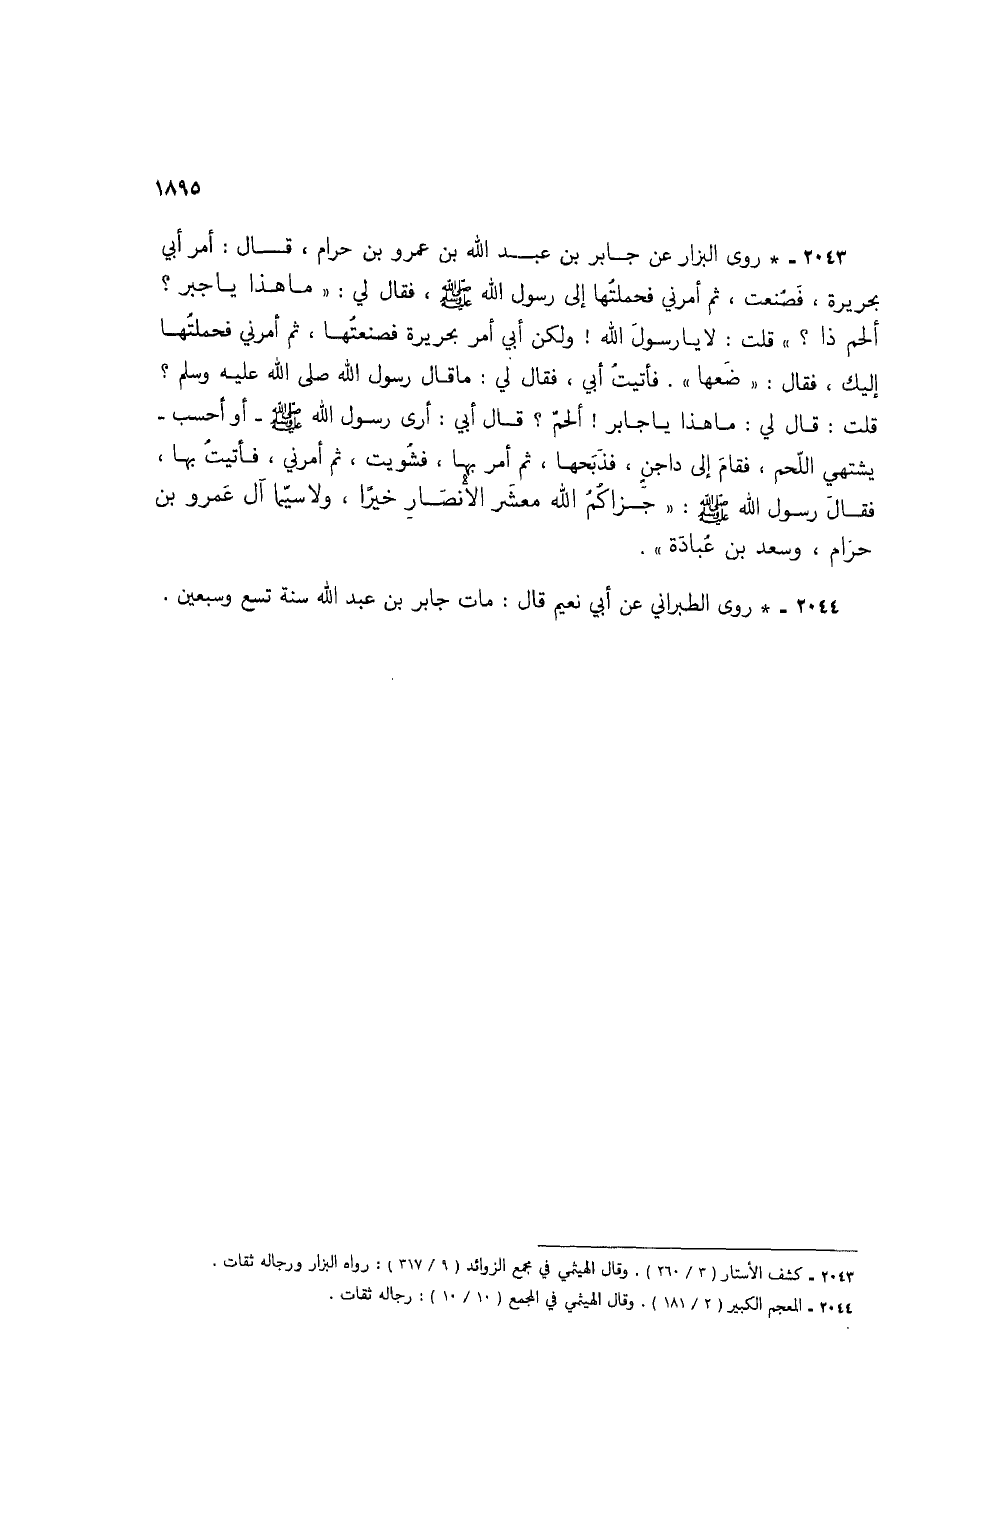 ١٨٩٥
٢٠٤٣ - * روى البزار عن جـابر بن عبـد الله بن عمرو بن حرام ، قـال : أمر أبي
بحريرة ، فَصُنعت ، ثم أمرني فحملتُها إلى رسول الله ﷺ ، فقال لي : « مـاهـذا يـاجبر ؟
ألحم ذا ؟ » قلت : لايـارسـولَ الله ! ولكن أبي أمر بحريرة فصنعتُهـا ، ثم أمرني فحملتُهـا
إليك ، فقال : « ضَعها » . فأتيتُ أبي ، فقال لي : ماقـال رسول الله صلى الله عليـه وسلم ؟
قلت : قـال لي : مـاهـذا يـاجـابر ! ألحمٌ ؟ قـال أبي : أرى رسـول الله ﷺ - أو أحسب -
يشتهي اللّحم ، فقامَ إلى داجنٍ ، فذَبَحهـا ، ثم أمر بهـا ، فشُويت ، ثم أمرني ، فـأتيتُ بهـا ،
فقـالَ رسـول الله ﷺ : « جَـزاكُمُ الله معشَر الأَنصَـارِ خيرًا ، ولاسيّما آل عَمرو بن
حرَام ، وسعد بن عُبادَة » .
٢٠٤٤ - * روى الطبراني عن أبي نعيم قال : مات جابر بن عبد الله سنة تسع وسبعين .
٢٠٤٣ - كشف الأستار ( ٣ / ٢٦٠ ) . وقال الهيثمي في مجمع الزوائد ( ٩ / ٣١٧ ) : رواه البزار ورجاله ثقات .
٢٠٤٤ - المعجم الكبير ( ٢ / ١٨١ ) . وقال الهيثمي في المجمع ( ١٠ / ١٠ ) : رجاله ثقات .